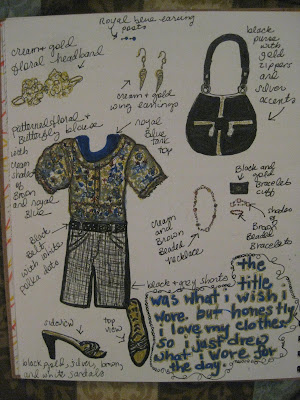 Royal blue earring
posts
cream + gold
floral headband
cream + gold
wing earrings
black
purse
with
gold
zippers
and
silver
accents
patterned floral +
Butterfly blouse
with
cream
shades
of
Brown
and royal
Blue
royal
Blue
tank
top
Black and
gold
Bracelet
cuff
shades of
Brown
Beaded
Bracelets
cream
and
Brown
Beaded
necklace
Black
Belt
with white
polka dots
black + grey shorts
sideview
top
view
black, gold, silver, brown,
and white sandals
the
title
was what i wish i
wore. but honestly
i love my clothes
so i just drew
what i wore for
the day.